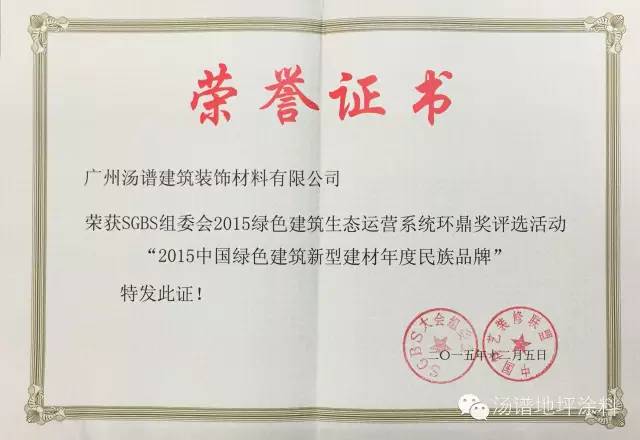 荣誉证书
广州汤谱建筑装饰材料有限公司
荣获SGBS组委会2015绿色建筑生态运营系统环鼎奖评选活动
“2015中国绿色建筑新型建材年度民族品牌”
特发此证！
SGBS大会组委
艺装修联盟
二〇一五年十二月五日
汤谱地坪涂料